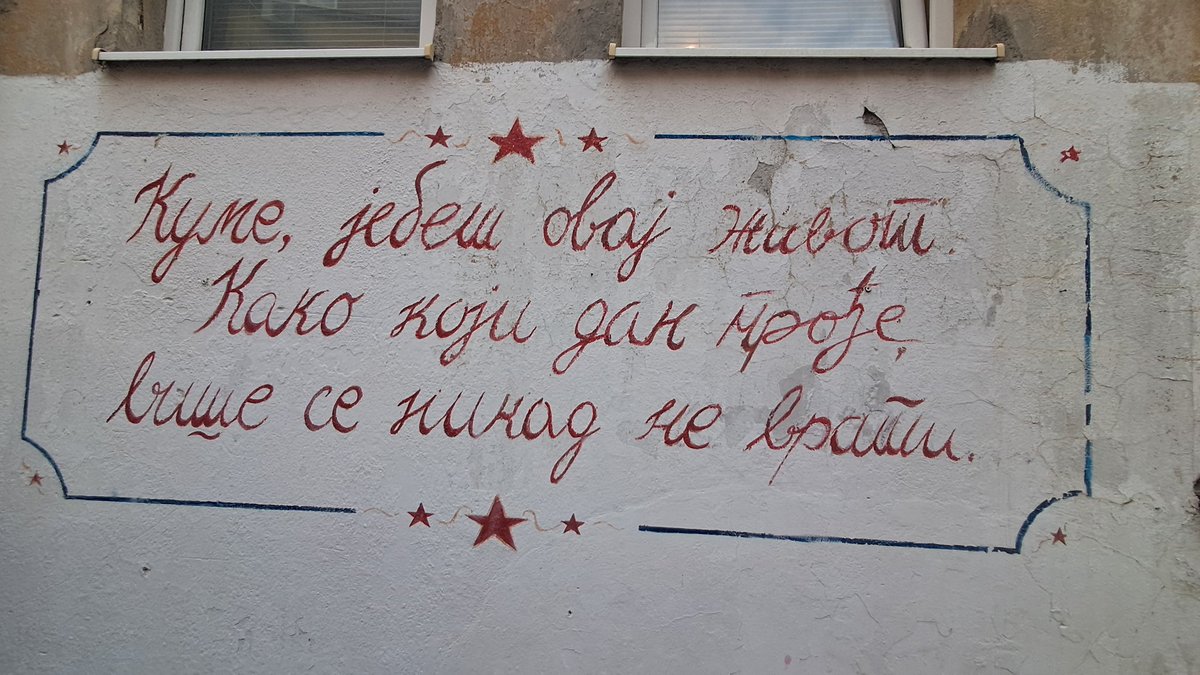 Куме, јебеш овај живот.
Како који дан прође,
више се никад не врати.